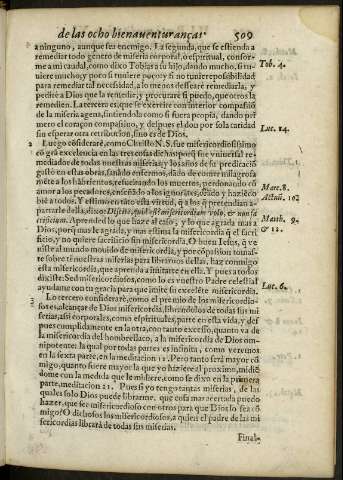 de las ocho bienauenturanças 509
a ninguno, aunque sea enemigo. La segunda, que se estienda a
remediar todo genero de miseria corporal, o espiritual, confor-
me a mi caudal, como dixo Tobias a su hijo, dando mucho, si tu-
uiere mucho, y poco si tuuiere poco: y si no tuuiere possibilidad
para remediar tal necessidad, a lo menos desseare remediarla, y
pedirè a Dios que la remedie, y procurarè si puedo, que otros la
remedien. La tercera es, que se exercite con interior compassiõ
de la miseria agena, sintiendola como si fuera propia, dando pri-
mero el coraçon compassiuo, y despues el don por sola caridad
sin esperar otra retribucion, sino es de Dios.
2 Luego considerarè, como Christo N. S. fue misericordiosissimo
cõ grã excelencia en las tres cosas dichas: porque fue vniuersal re-
mediador de todas nuestras miserias, y los años de su predicaciõ
gastò en estas obras, sanãdo enfermos, dãdo de comer cõ milagros
mãjares a los hãbrientos, resucitando los muertos, perdonando cõ
amor a los pecadores, enseñãdo a los ignorãtes, oiendo y haziendo
biẽ a todos. Y estimò en tãto esta virtud, q̃ a los q̃ pretendian a-
partarle della, dixo: Discite, quid est misericordiam volo, & non sa
crificium. Aprended lo que haze al caso, y lo que agrada mas a
Dios, porq̃ mas le agrada, y mas estima la misericordia q̃ el sacri-
ficio, y no quiere sacrificio sin misericordia. O buen Iesus, q̃ vi-
niste al mundo mouido de misericordia, y por cõpassion tomas-
te sobre ti nuestras miserias para librarnos dellas, haz conmigo
esta misericordia, que aprenda a imitarte en ella. Y pues a todos
dixiste: Sed misericordiosos, como lo es vuestro Padre celestial
ayudame con tu gracia para que imite su excelẽte misericordia.
3 Lo tercero considerarè, como el premio de los misericordio-
sos es, alcançar de Dios misericordia, librandolos de todas sus mi
serias, assi corporales, como espirituales, parte en esta vida, y des-
pues cumplidamente en la otra, con tanto excesso, quanto va de
la misericordia del hombre flaco, a la misericordia de Dios om-
nipotente: la qual por todas partes es infinita, como veremos
en la sexta parte, en la meditacion 12. Pero tanto serà mayor cõ
migo, quanto fuere mayor la que yo hiziere al proximo, midiẽ
dome con la medida que le midiere, como se dixo en la primera
parte, meditacion 21. Pues si yo tengo tantas miserias, de las
quales solo Dios puede librarme, que cosa mas acertada puedo
hazer, que ser misericordioso con otros para que Dios lo sea cõ
migo? O dichosos los misericordiosos, a quien el padre de las mi
sericordias librarà de todas sus miserias.
Final-
Tob. 4.
Luc. 14.
Marc. 8.
Matth. 9.
& 12.
Luc. 6.